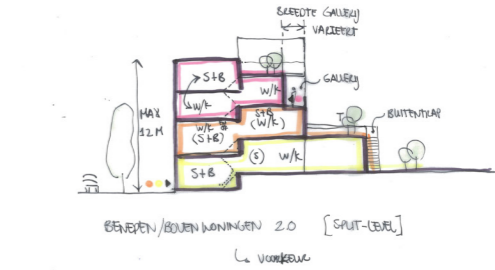 BREEDTE GALLERIJ
VARIEERT
GALLERIJ
S+B
W/K
W/K
MAX
12 M
W/K
(S+B)
S+B
(W/K)
BUITENTRAP
S+B
(S) W/K
BENEDEN/BOVENWONINGEN 2.0 [SPLIT-LEVEL]
VOORKEUR